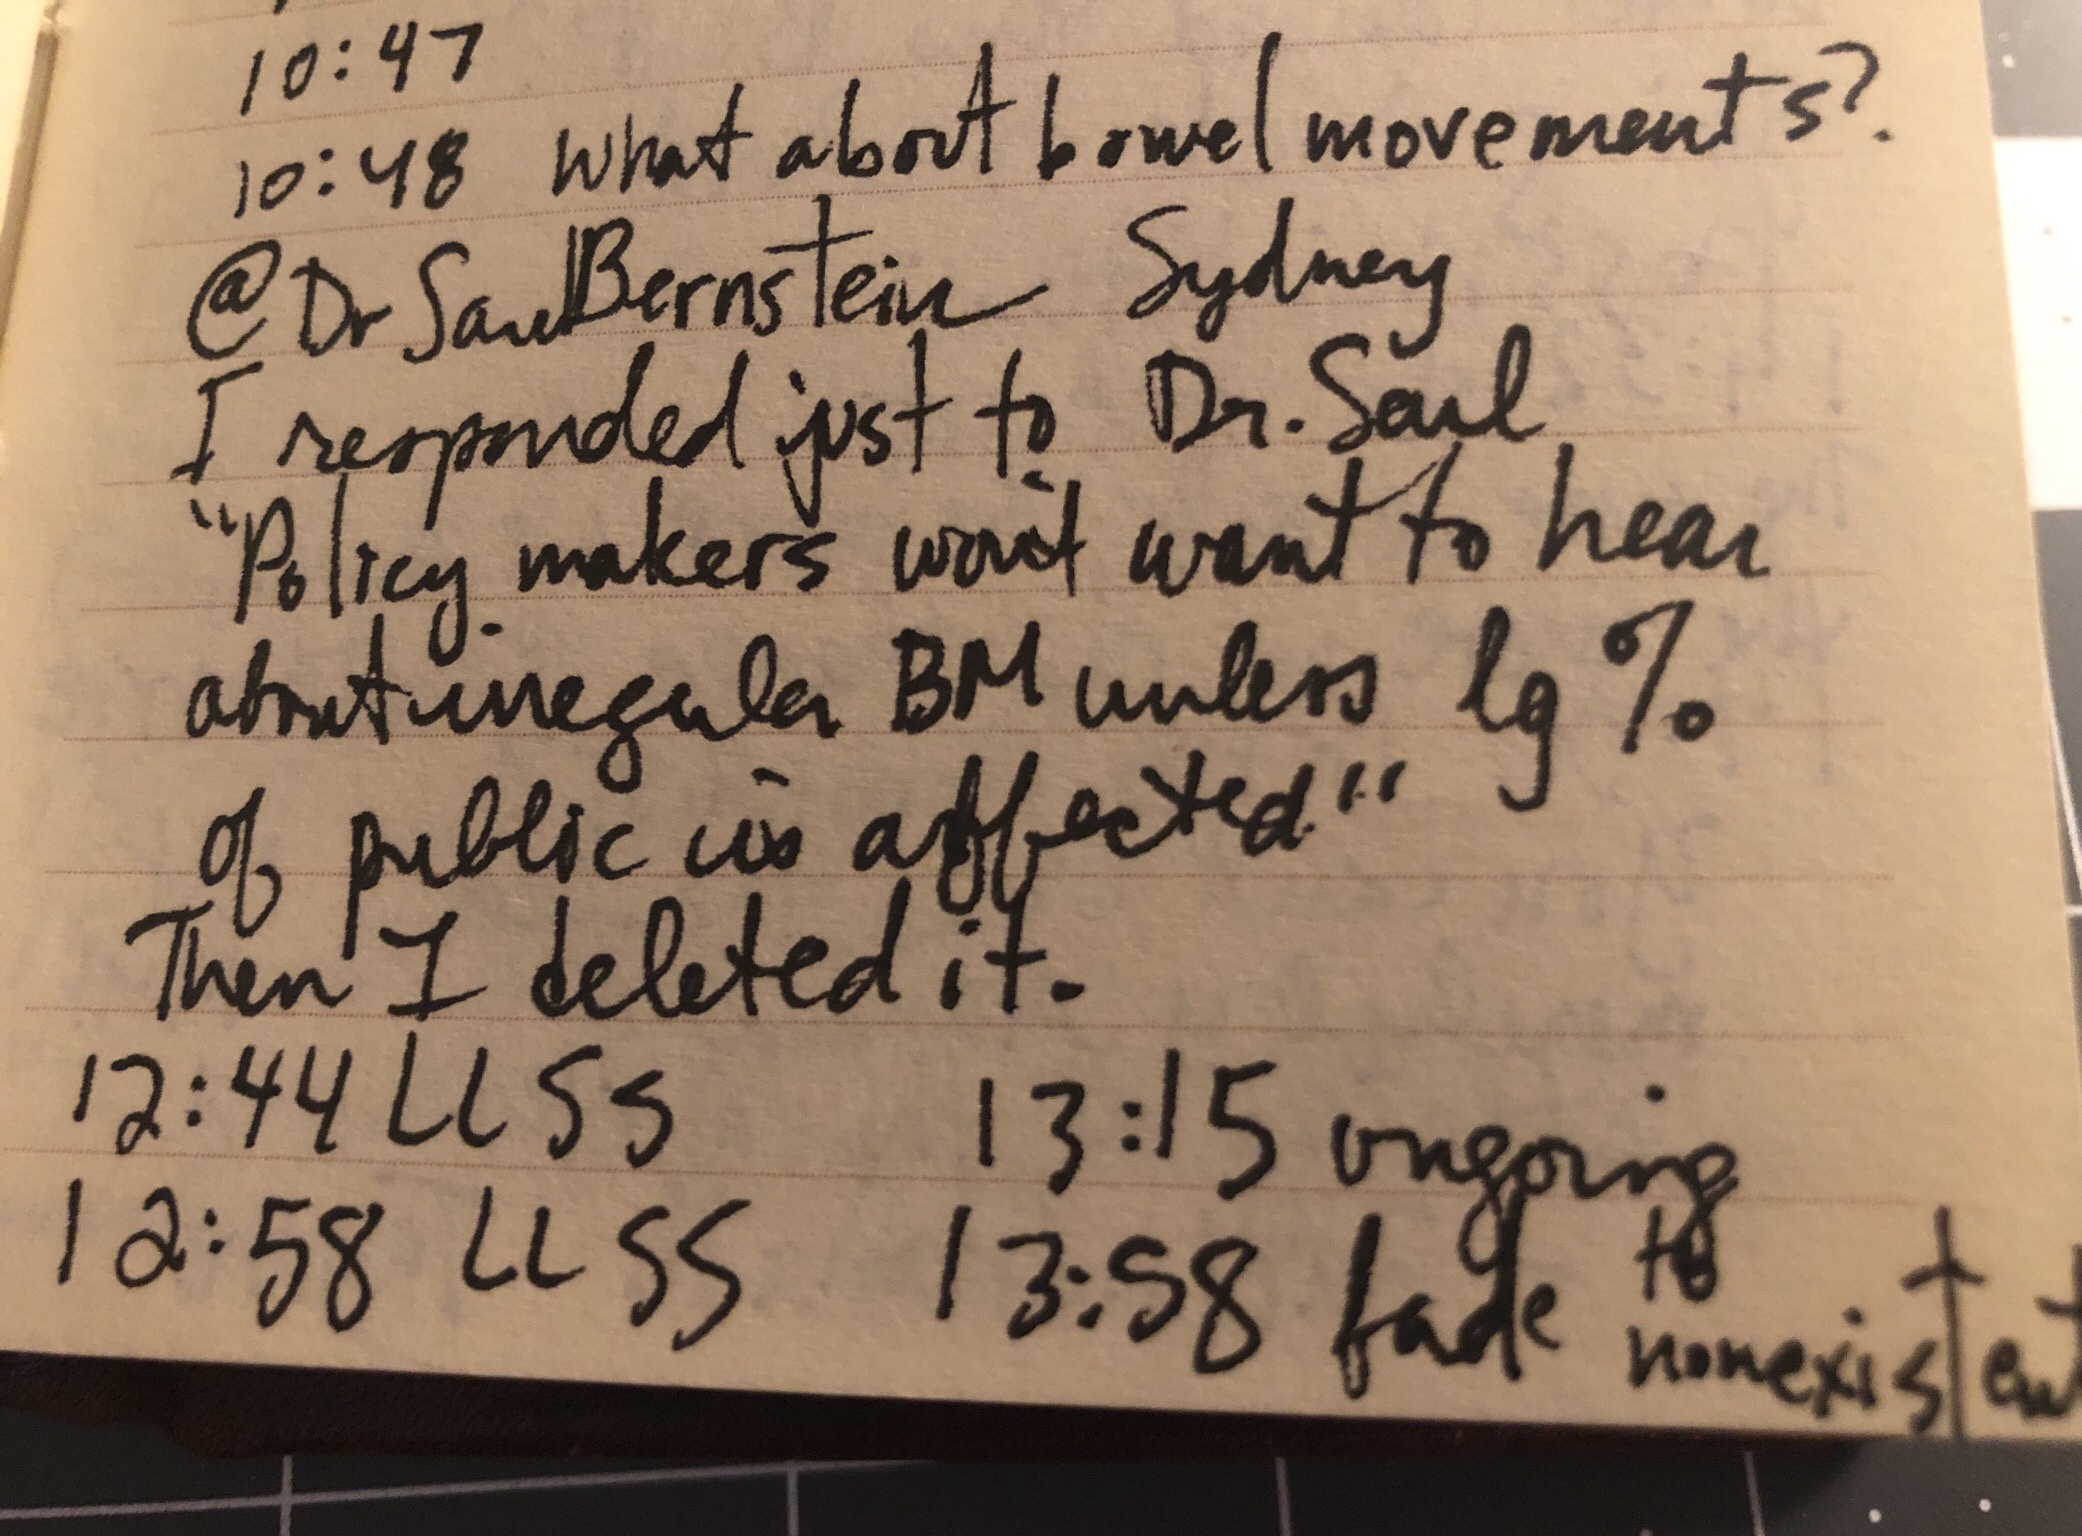 10:47
10:48 what about bowel movements?
@DrSaulBernstein Sydney
I responded just to Dr. Saul
"Policy makers won't want to hear
about irregular BM unless lg %
of public is affected"
Then I deleted it.
12:44 LL SS 13:15 ongoing
12:58 LL SS 13:58 fade to
nonexistent